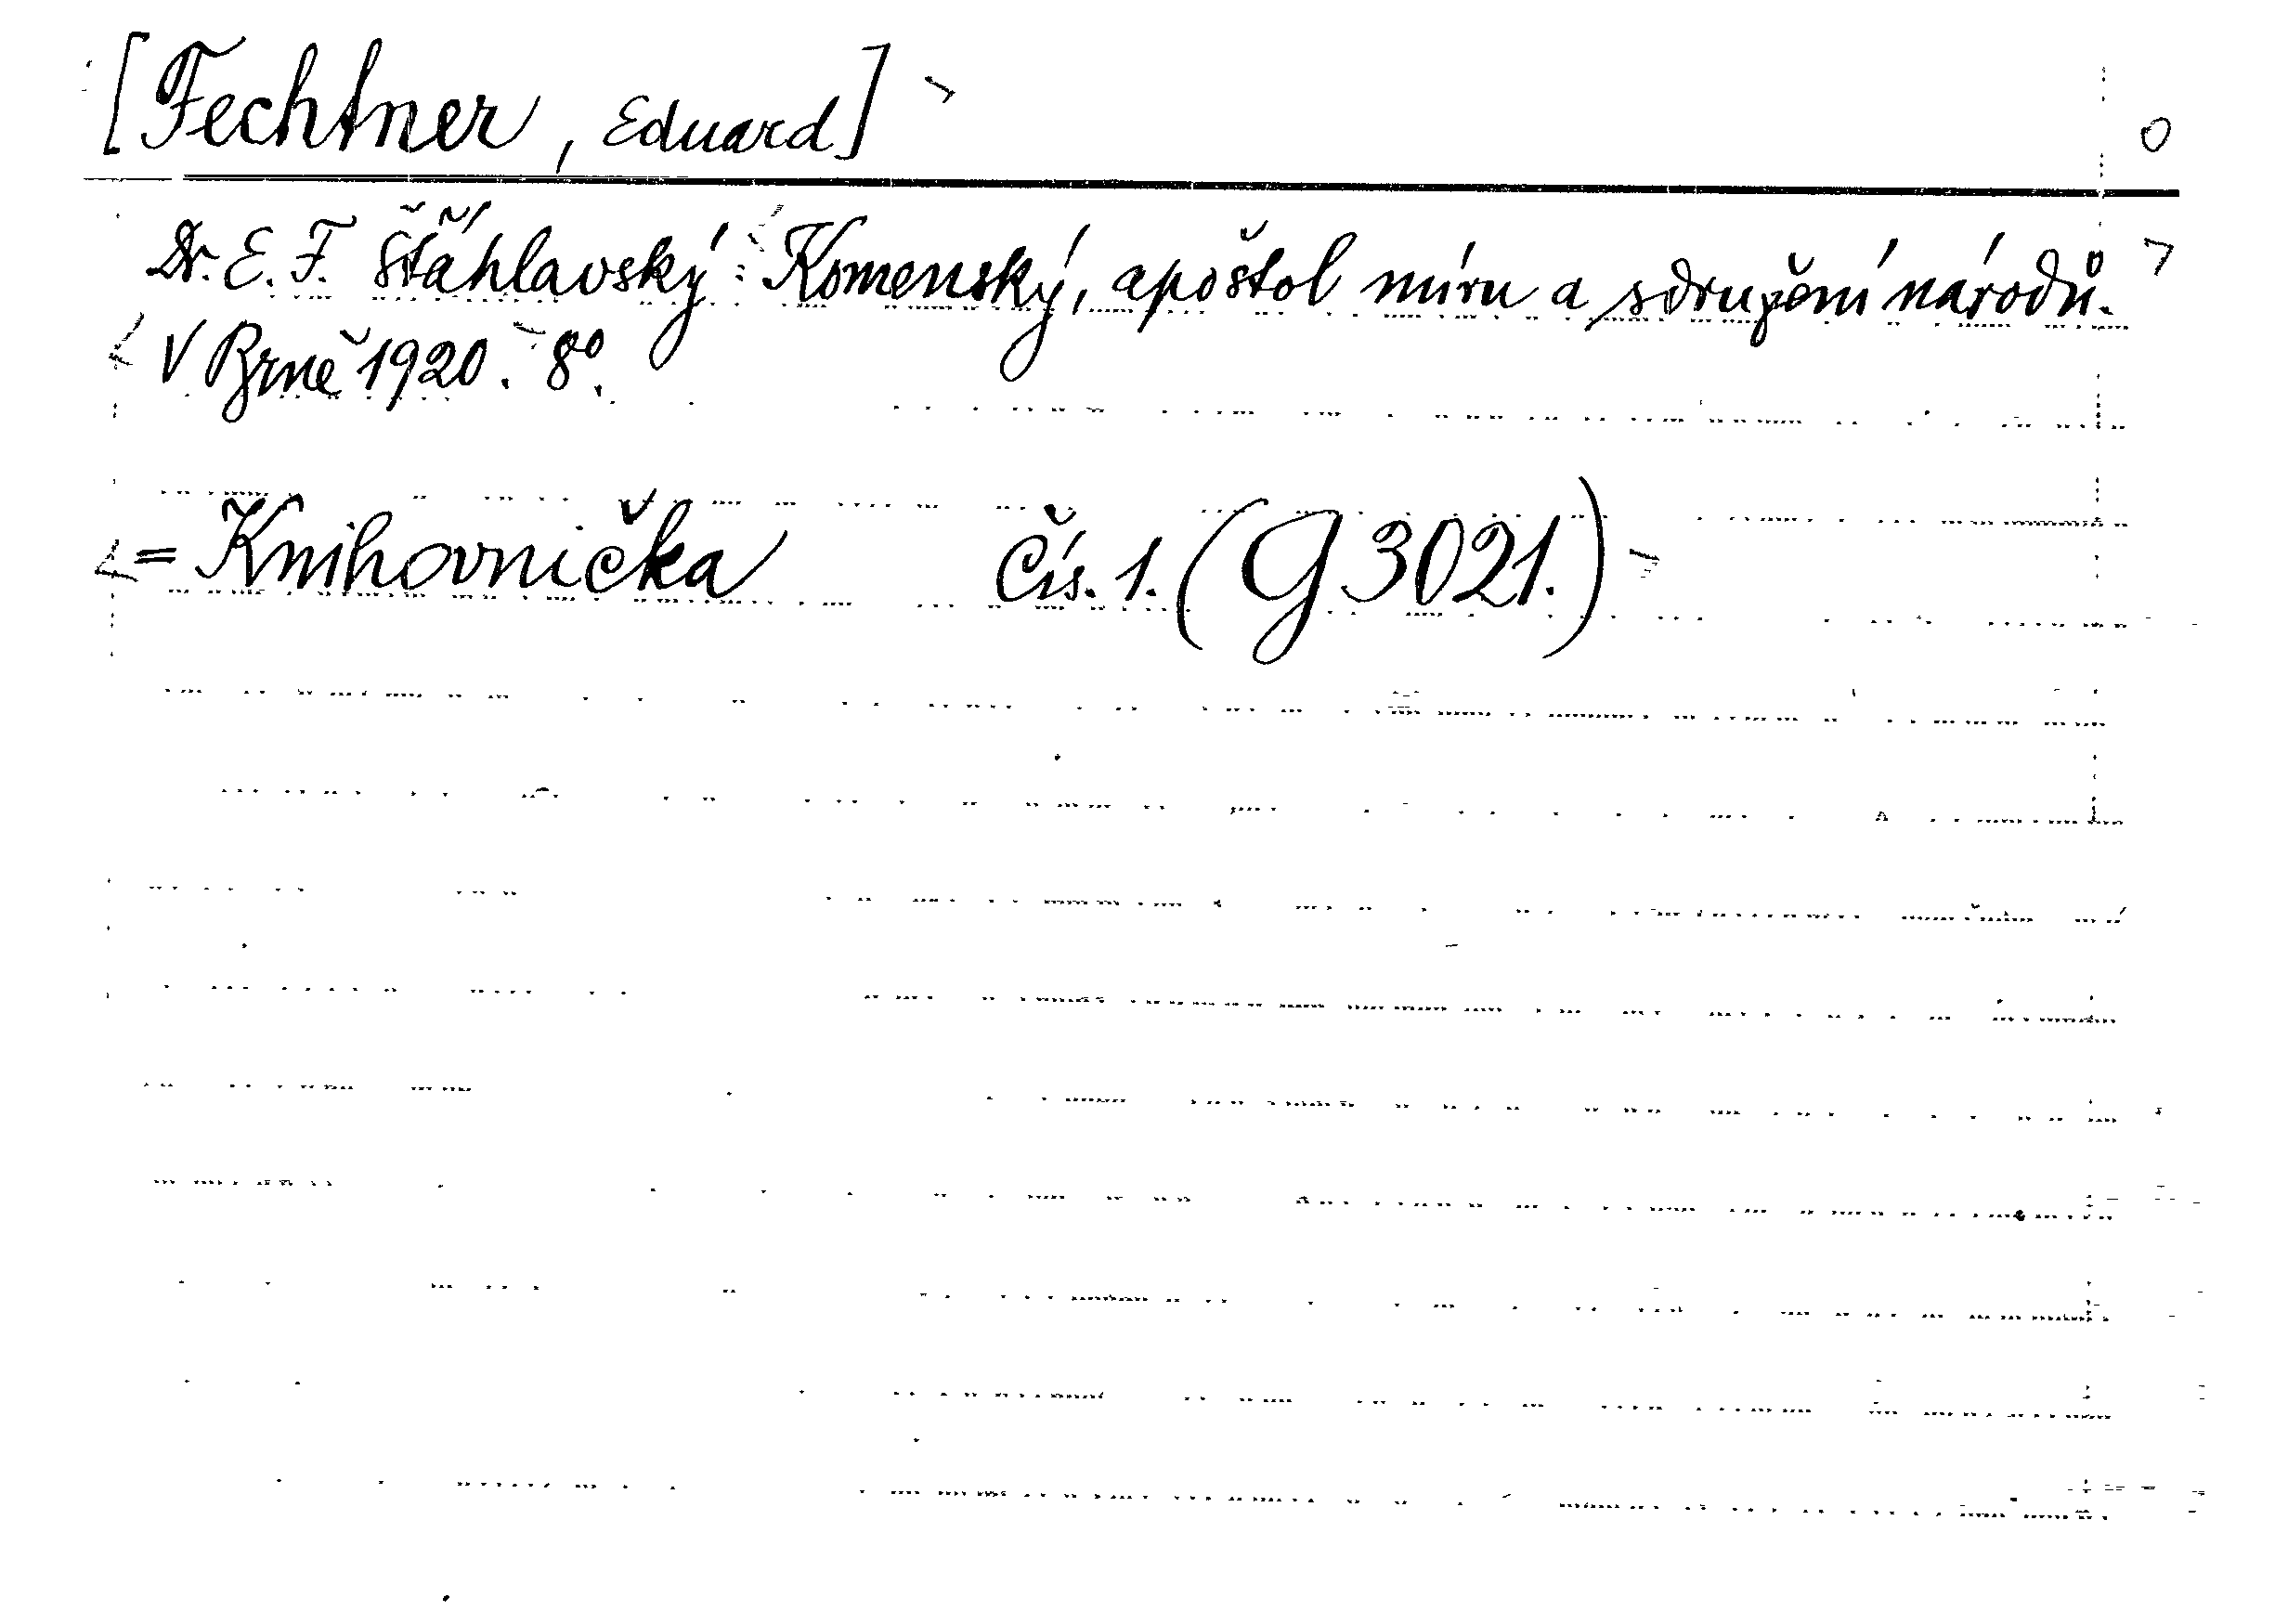 [Fechtner, Eduard] 0
Dr. E. F. Šťáhlavský: Komenský, apoštol míru a sdružení národů.
V Brně 1920. 8º.
= Knihovnička Čís. 1. (G 3021.)